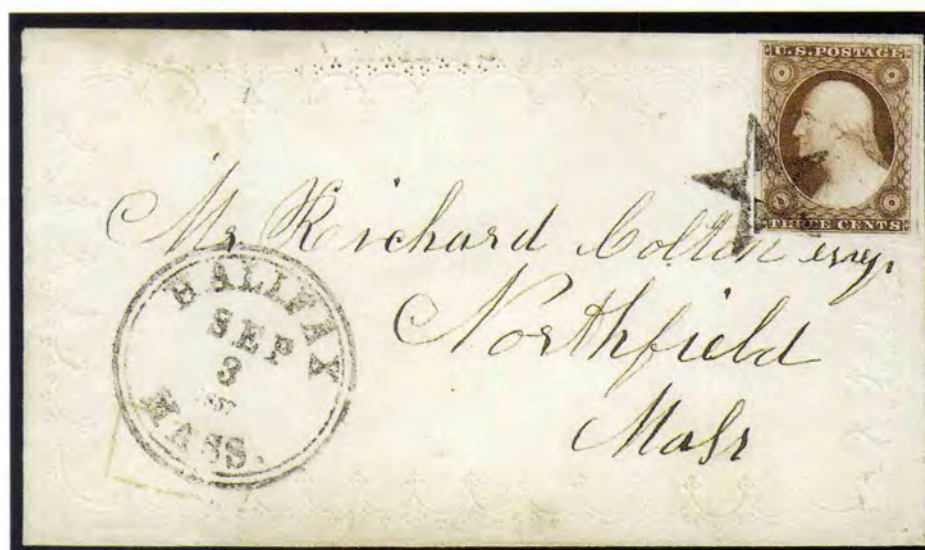 U.S. POSTAGE
THREE CENTS
Mr Richard Colton esq.
Northfield
Mass
HALIFAX
SEP
3
1857
MASS.